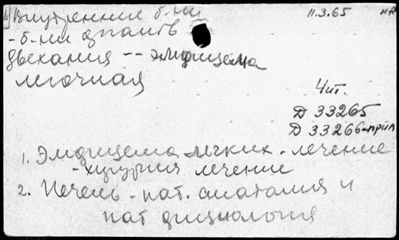 Внутренние б-ни 11.3.65
- б-ни
дыхания -- эмфизема
легочная
Чит.
Д 33265
Д 33266-прил
1. Эмфизема легких - лечение
- хирургия лечение
2. Печень - пат. анатомия и
пат физиология